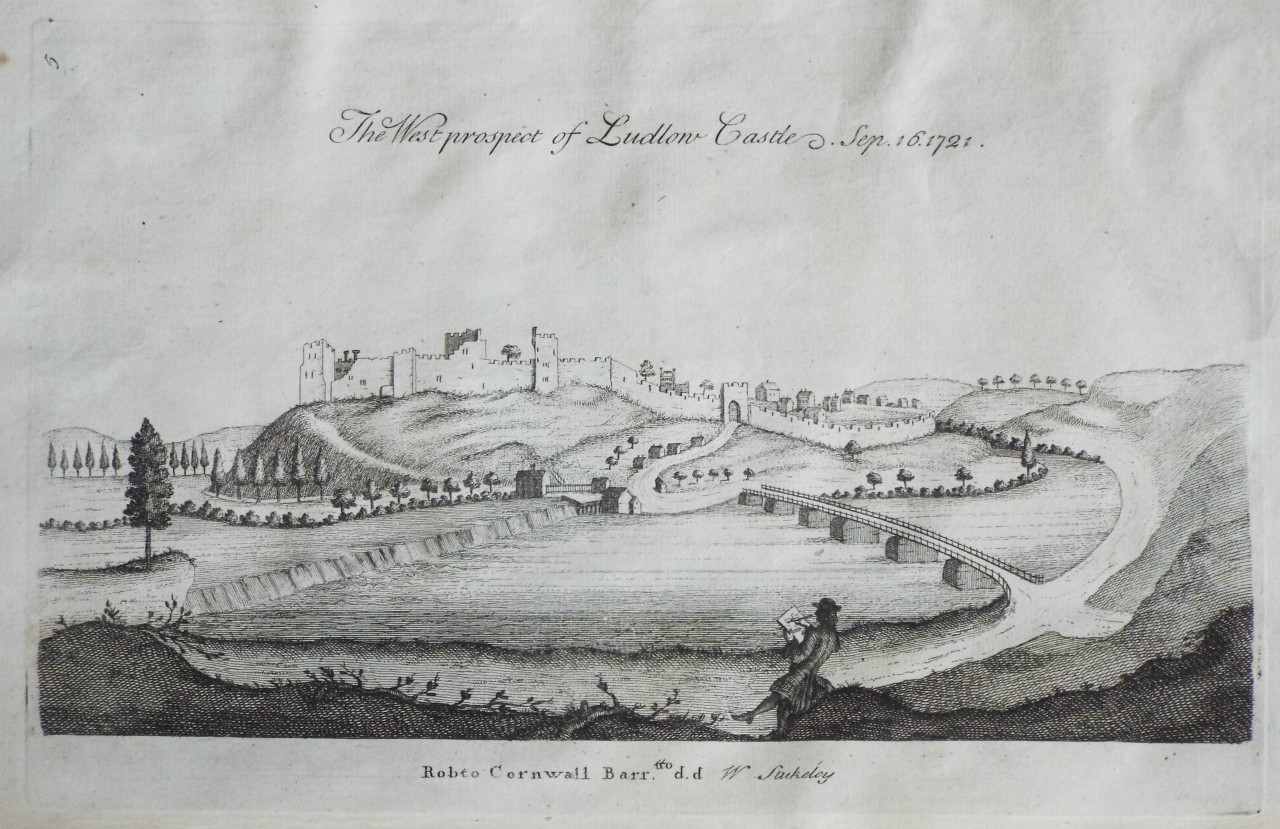 5
The West prospect of Ludlow Castle. Sep. 16. 1721.
Robto Cornwall Barr.tto d.d W Stukeley